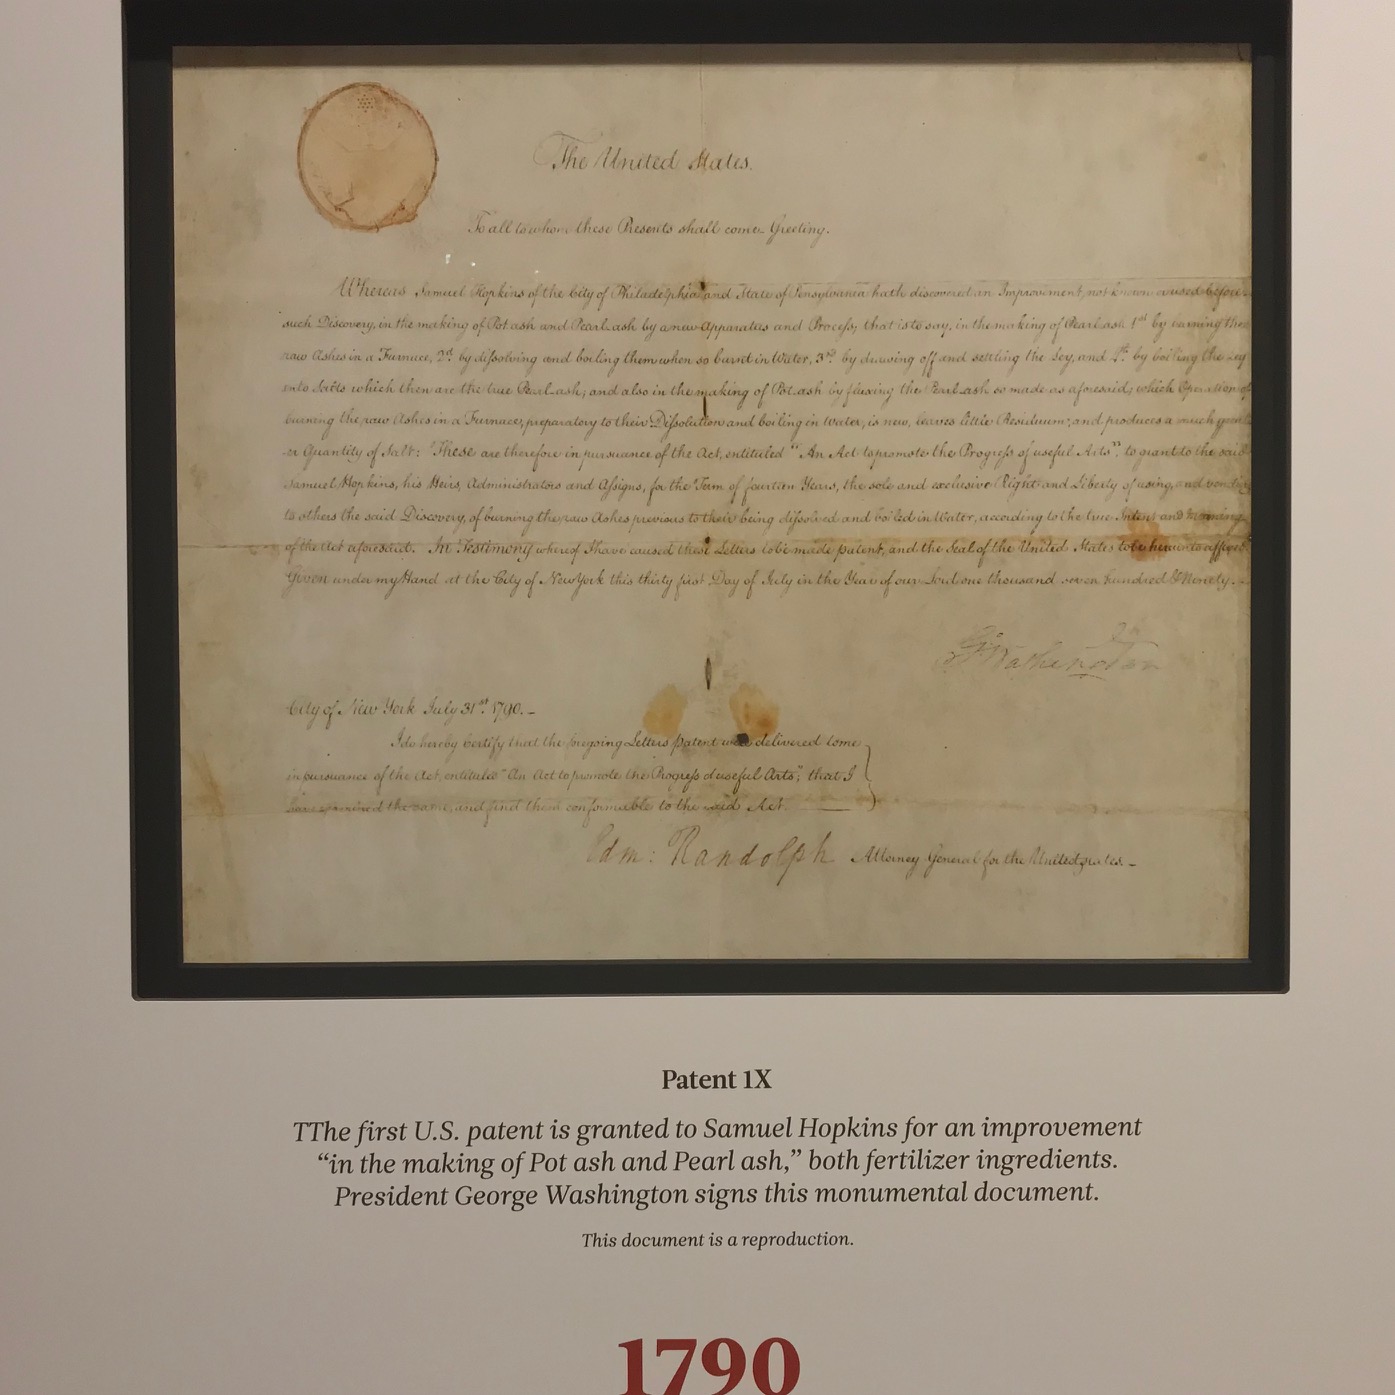 The United States.
To all to whom these Presents shall come Greeting.
Whereas Samuel Hopkins of the City of Philadelphia and State of Pensylvania hath discovered an Improvement, not known or used before
such Discovery, in the making of Pot ash and Pearl ash by a new Apparatus and Process; that is to say, in the making of Pearl ash 1st by burning the
raw Ashes in a Furnace, 2d. by dissolving and boiling them when so burnt in Water, 3rd. by drawing off and settling the Ley, and 4th. by boiling the Ley
into Salts which then are the true Pearl ash; and also in the making of Pot ash by fluxing the Pearl ash so made as aforesaid; which Operation of
burning the raw Ashes in a Furnace, preparatory to their Dissolution and boiling in Water, is new, leaves little Residuum; and produces a much great-
er Quantity of Salt: These are therefore in pursuance of the Act, entituled "An Act to promote the Progress of useful Arts", to grant to the said
Samuel Hopkins, his Heirs, Administrators and Assigns, for the Term of fourteen Years, the sole and exclusive Right and Liberty of using, and vending
to others the said Discovery, of burning the raw Ashes previous to their being dissolved and boiled in Water, according to the true Intent and Meaning
of the Act aforesaid. In Testimony whereof I have caused these Letters to be made patent, and the Seal of the United States to be hereunto affixed
Given under my Hand at the City of New York this thirty first Day of July in the Year of our Lord one thousand seven hundred & Ninety.
G. Washington
City of New York July 31st. 1790. –
I do hereby Certify that the foregoing Letters patent were delivered to me
in pursuance of the Act, entituled "An Act to promote the Progress of useful Arts"; that I
have examined the same, and find them conformable to the said Act.
Edm: Randolph Attorney General for the United States. –
Patent 1X
TThe first U.S. patent is granted to Samuel Hopkins for an improvement
“in the making of Pot ash and Pearl ash,” both fertilizer ingredients.
President George Washington signs this monumental document.
This document is a reproduction.
1790